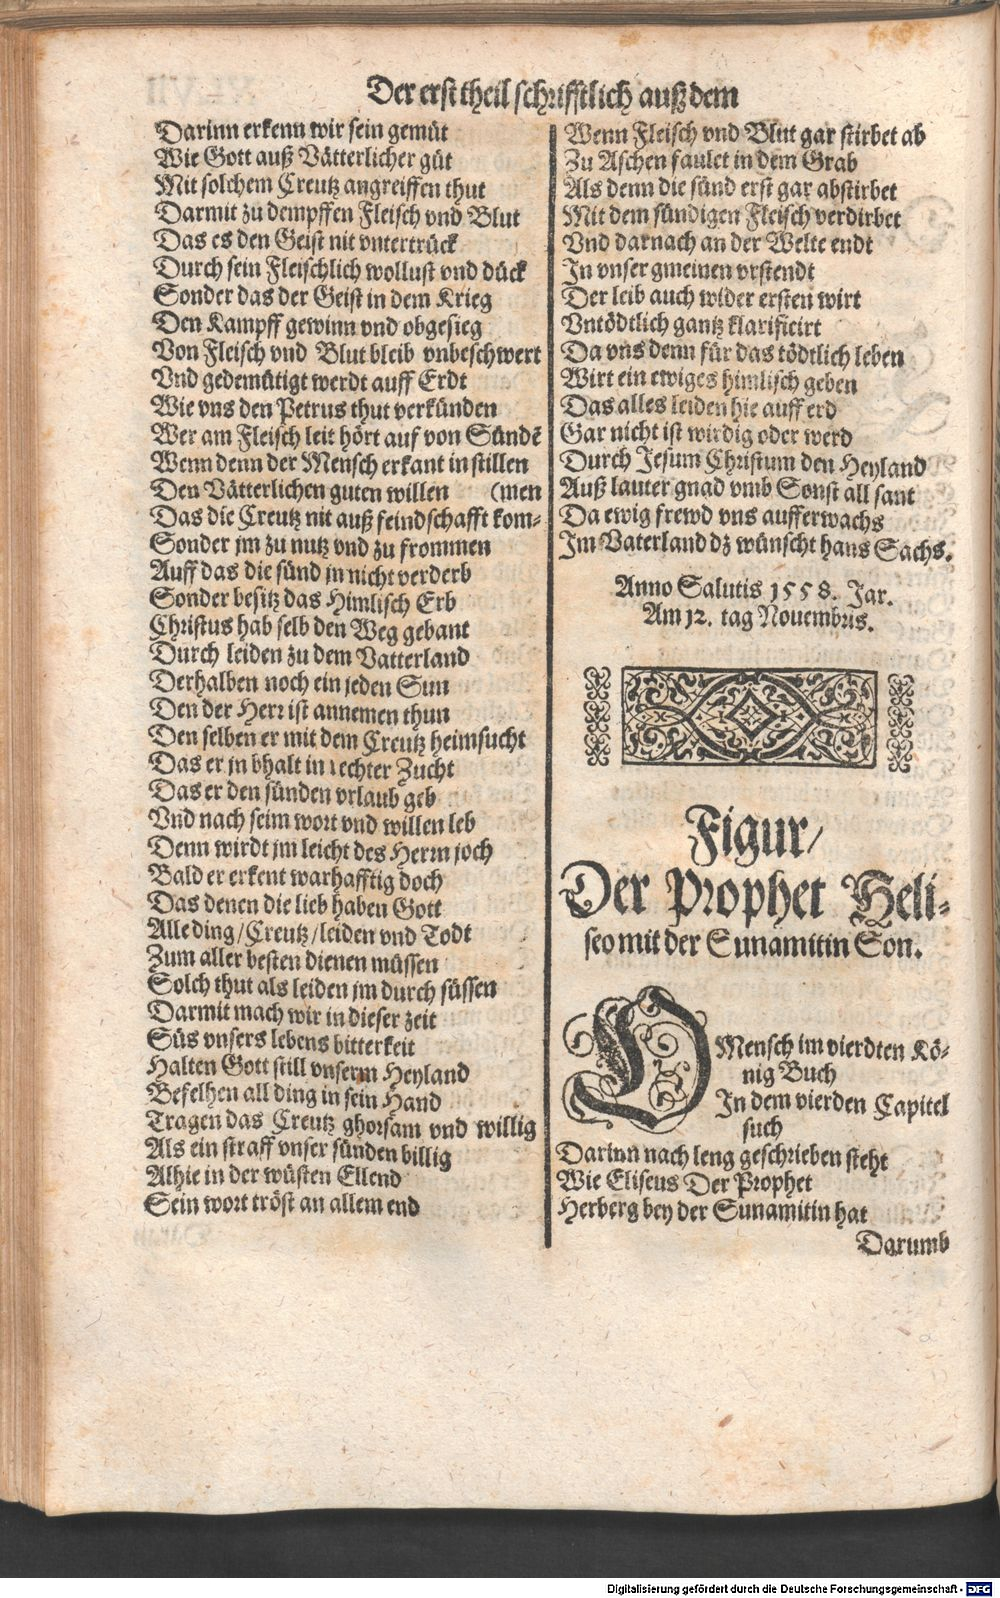 Der erst theil schrifftlich auß dem
Darinn erkenn wir sein gemüt
Wie Gott auß Vätterlicher güt
Mit solchem Creutz angreiffen thut
Darmit zu dempffen Fleisch vnd Blut
Das es den Geist nit vntertrück
Durch sein Fleischlich wollust vnd dück
Sonder das der Geist in dem Krieg
Den Kampff gewinn vnd obgesieg
Von Fleisch vnd Blut bleib vnbeschwert
Vnd gedemütigt werdt auff Erdt
Wie vns den Petrus thut verkünden
Wer am Fleisch leit hört auf von Sündē
Wenn denn der Mensch erkant in stillen
Den Vätterlichen guten willen (men
Das die Creutz nit auß feindschafft kom-
Sonder jm zu nutz vnd zu frommen
Auff das die sünd jn nicht verderb
Sonder besitz das Himlisch Erb
Christus hab selb den Weg gebant
Durch leiden zu dem Vatterland
Derhalben noch ein jeden Sun
Den der Herr ist annemen thun
Den selben er mit dem Creutz heimsucht
Das er jn bhalt in rechter Zucht
Das er den sünden vrlaub geb
Vnd nach seim wort vnd willen leb
Denn wirdt jm leicht des Herrn joch
Bald er erkent warhafftig doch
Das denen die lieb haben Gott
Alle ding/Creutz/leiden vnd Todt
Zum aller besten dienen müssen
Solch thut als leiden jm durch süssen
Darmit mach wir in dieser zeit
Süs vnsers lebens bitterkeit
Halten Gott still vnserm Heyland
Befelhen all ding in sein Hand
Tragen das Creutz ghorsam vnd willig
Als ein straff vnser sünden billig
Alhie in der wüsten Ellend
Sein wort tröst an allem end
Wenn Fleisch vnd Blut gar stirbet ab
Zu Aschen faulet in dem Grab
Als denn die sünd erst gar abstirbet
Mit dem sündigen Fleisch verdirbet
Vnd darnach an der Welte endt
In vnser gmeinen vrstendt
Der leib auch wider ersten wirt
Vntödtlich gantz klarificirt
Da vns denn für das tödtlich leben
Wirt ein ewiges himlisch geben
Das alles leiden hie auff erd
Gar nicht ist wirdig oder werd
Durch Jesum Christum den Heyland
Auß lauter gnad vmb Sonst all sant
Da ewig frewd vns aufferwachs
Im Vaterland dz wünscht hans Sachs.
Anno Salutis 1558. Jar.
Am 12. tag Nouembris.
Figur/
Der Prophet Heli-
seo mit der Sunamitin Son.
O Mensch im vierdten Kö-
nig Buch
In dem vierden Capitel
such
Darinn nach leng geschrieben steht
Wie Eliseus Der Prophet
Herberg bey der Sunamitin hat
Darumb
Digitalisierung gefördert durch die Deutsche Forschungsgemeinschaft - DFG